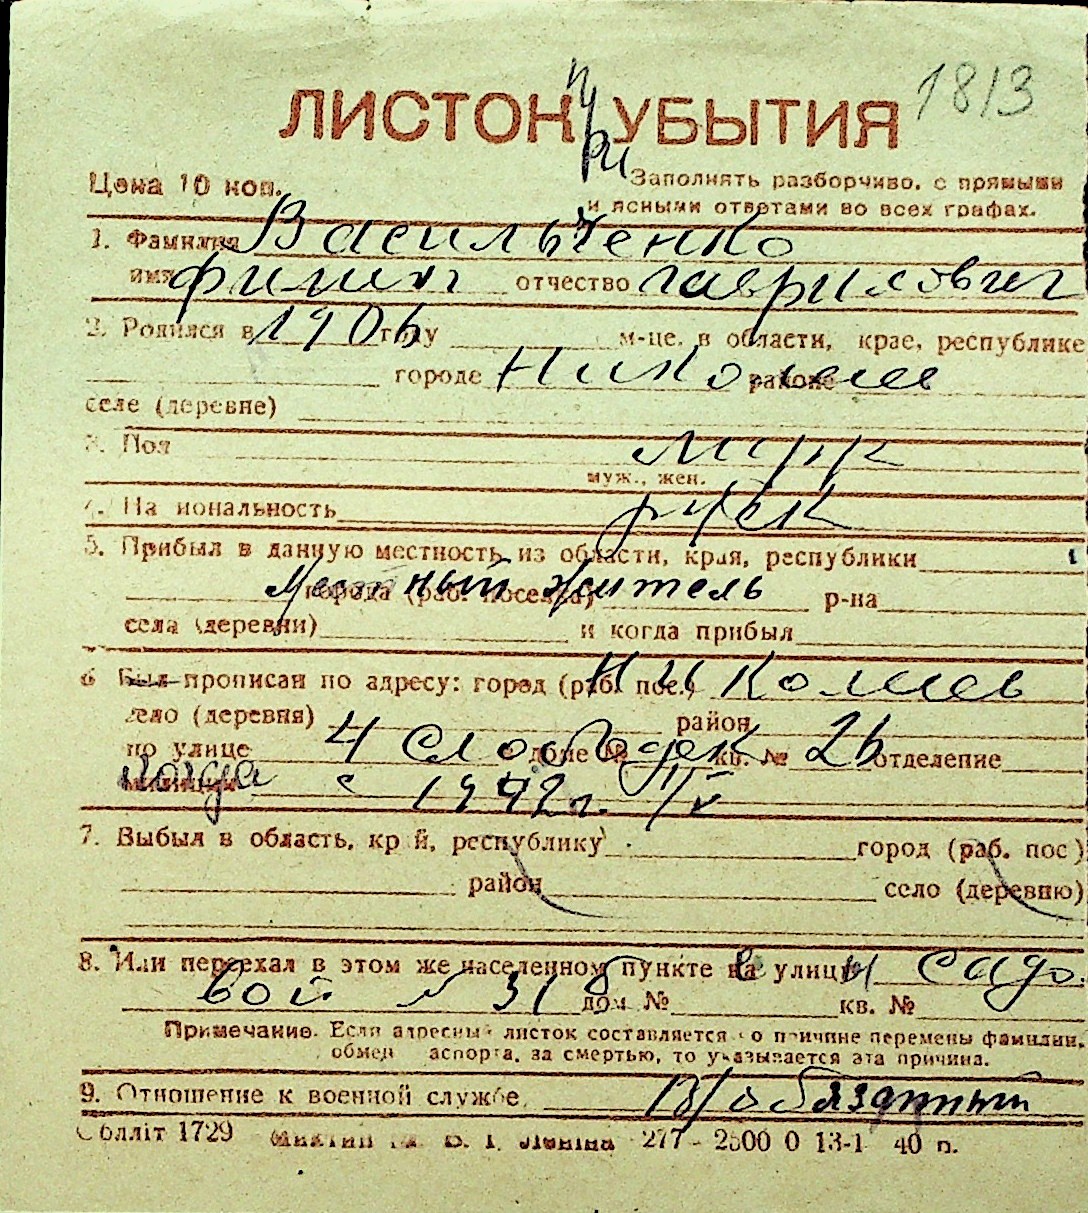 1813
ЛИСТОК УБЫТИЯ
при
Цена 10 коп.
Заполнять разборчиво, с прямыми
и ясными ответами во всех графах.
1. Фамилия Васильченко
имя Филип отчество Гаврилович
2. Родился в 1906 году м-це, в области, крае, республике
городе Николаеве районе
селе (деревне)
3. Пол муж
муж., жен.
4. Национальность русск
5. Прибыл в данную местность из области, края, республики
Местный житель
города (раб. поселка) р-на
села (деревни) и когда прибыл
6 Был прописан по адресу: город (раб. пос.) Николаев
село (деревня) район
по улице 4 слободск доме № кв. № 26 отделение
милиции когда с 1942г. IV
7. Выбыл в область, край, республику город (раб. пос)
район село (деревню)
8. Или переехал в этом же населенном пункте на улицу Н Садо-
вой № 31 дом № кв. №
Примечание. Если адресный листок составляется по причине перемены фамилии,
обмен паспорта, за смертью, то указывается эта причина.
9. Отношение к военной службе. В/обязанный
Облліт 1729 В. І. Леніна 277 - 2500 0 13-1 40 п.